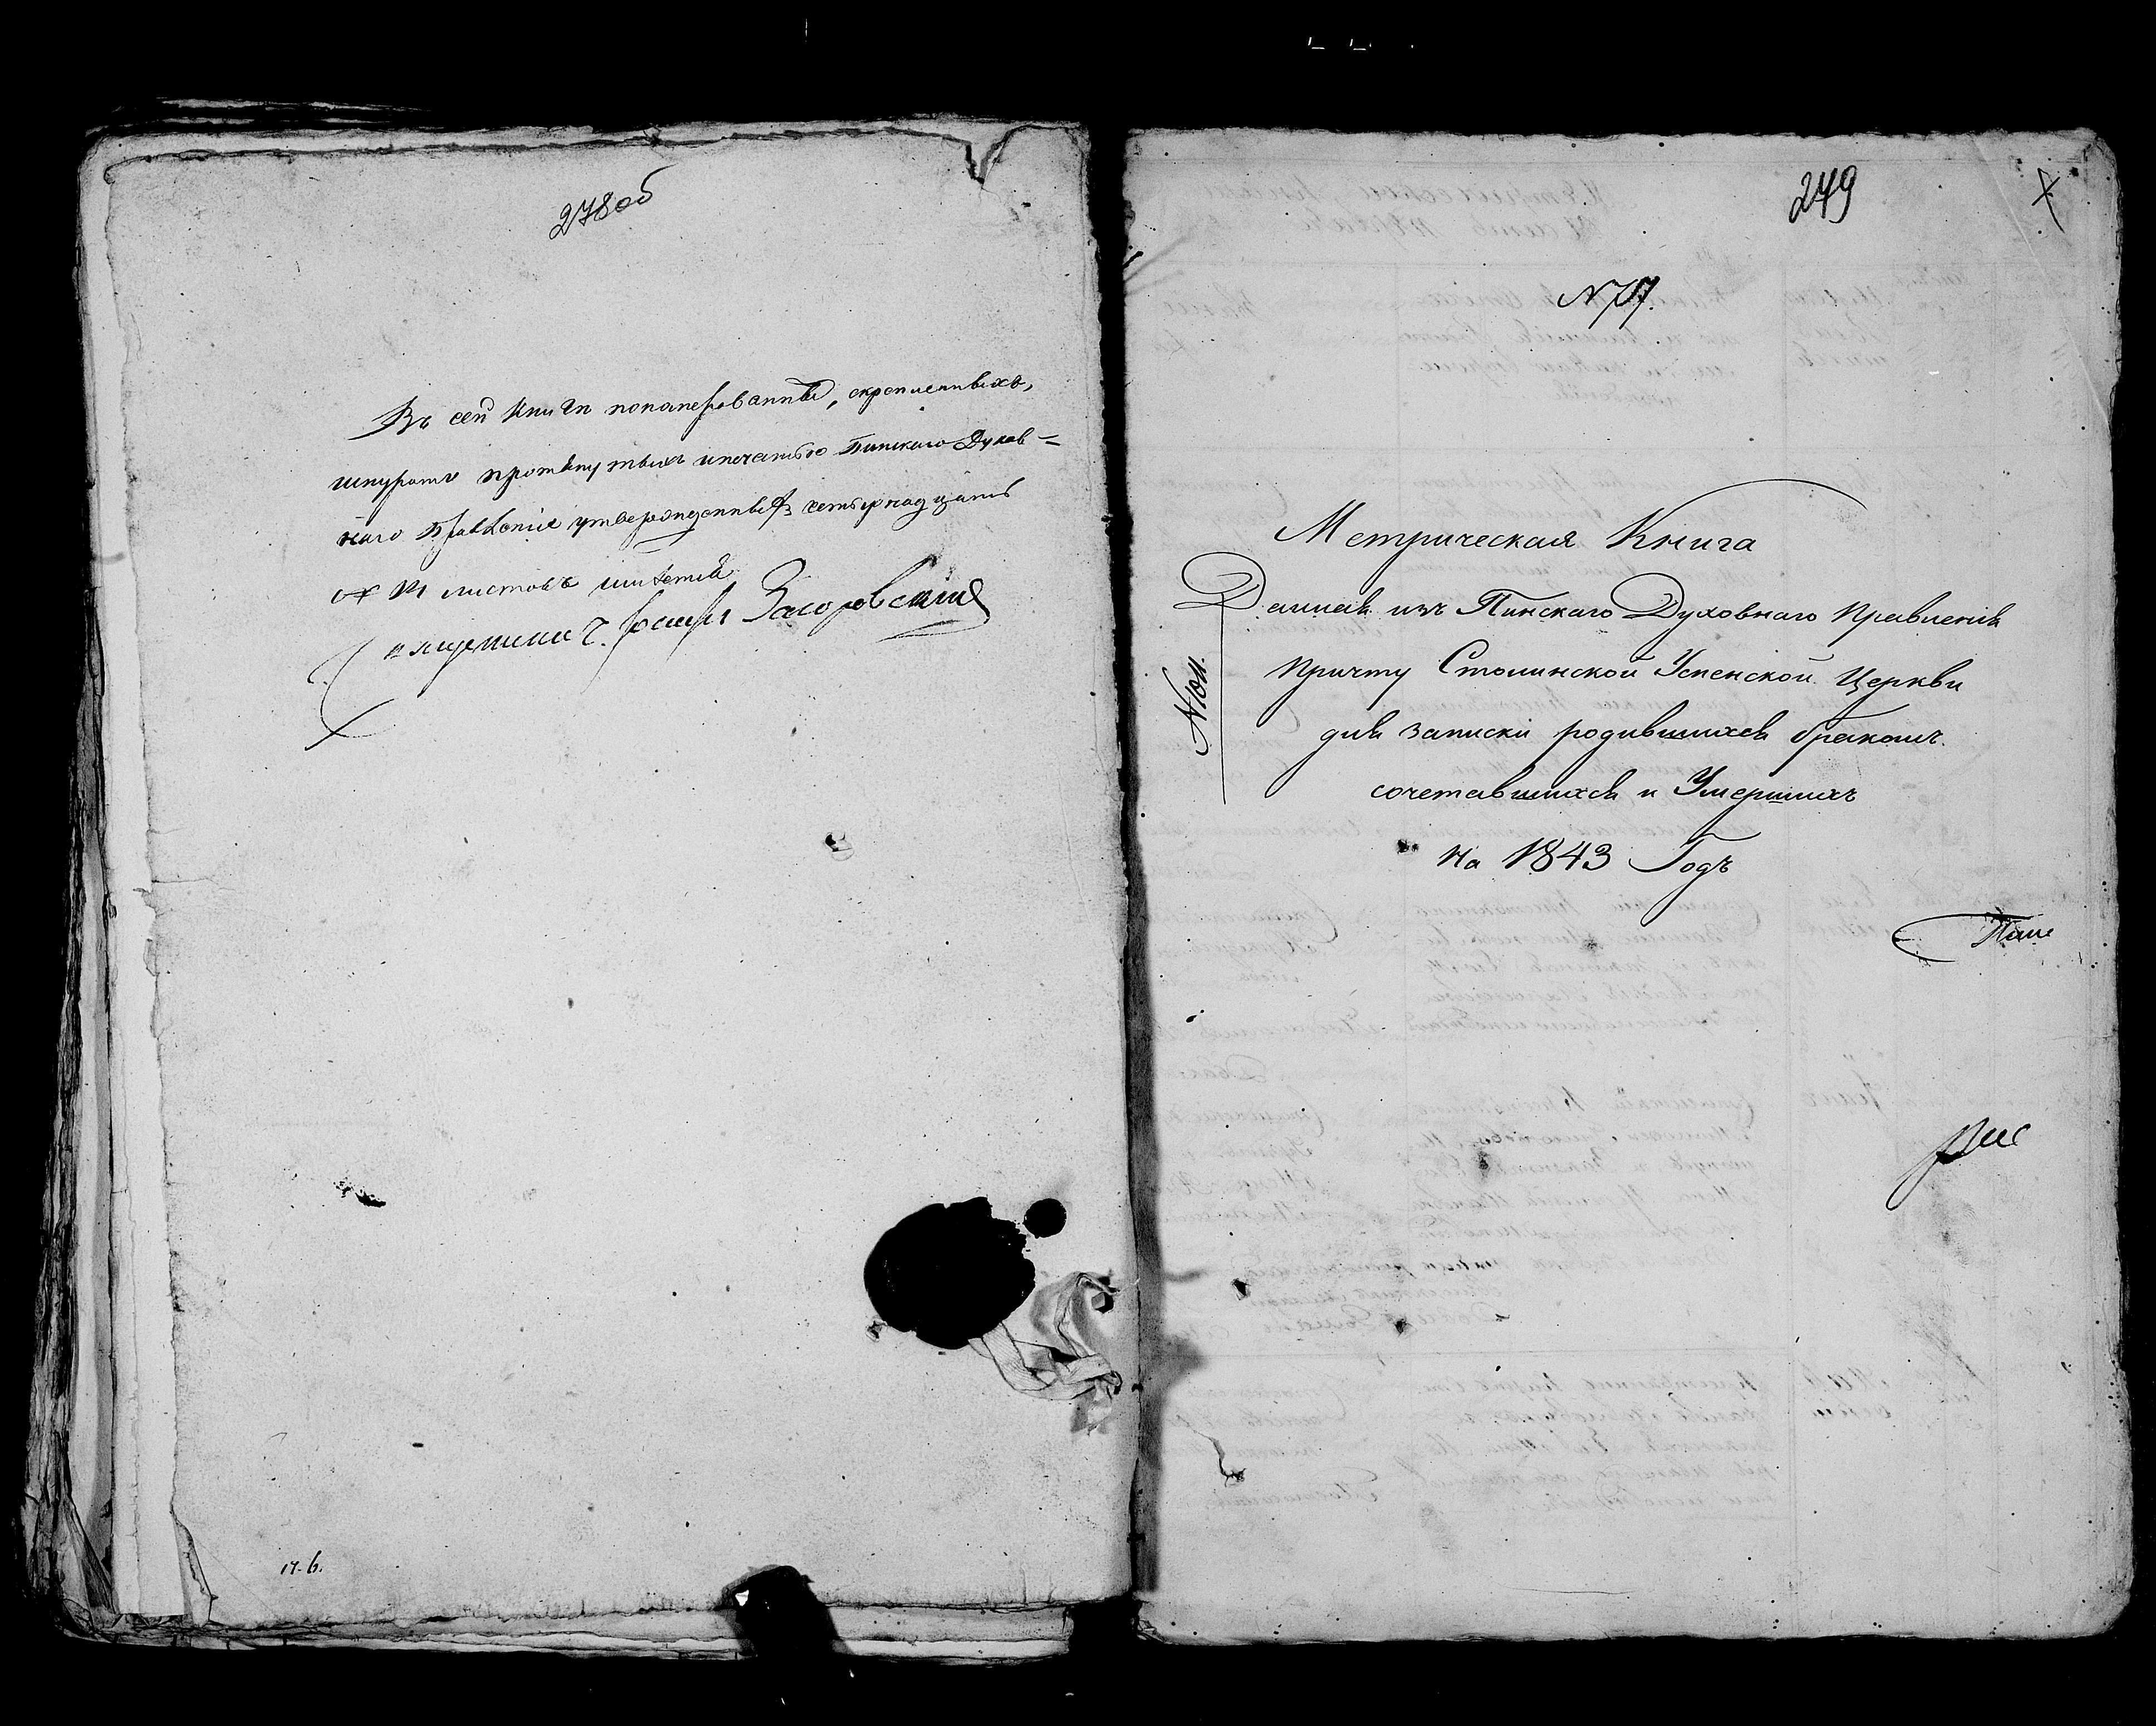 278об
Въ сей Книги пономерованныхъ, скрепленныхъ,
шнуромъ протянутыхъ и печатью Пинскаго Духов=
наго Правленія утвержденныхъ четырнадцать
листовъ имѣется
Загоровскій
279
Метрическая Книга
Данная изъ Пинскаго Духовнаго Правленія
Причту Столинской Успенской Церкви
для записки родившихся бракомъ
сочетавшихся и Умершихъ
на 1843 Годъ